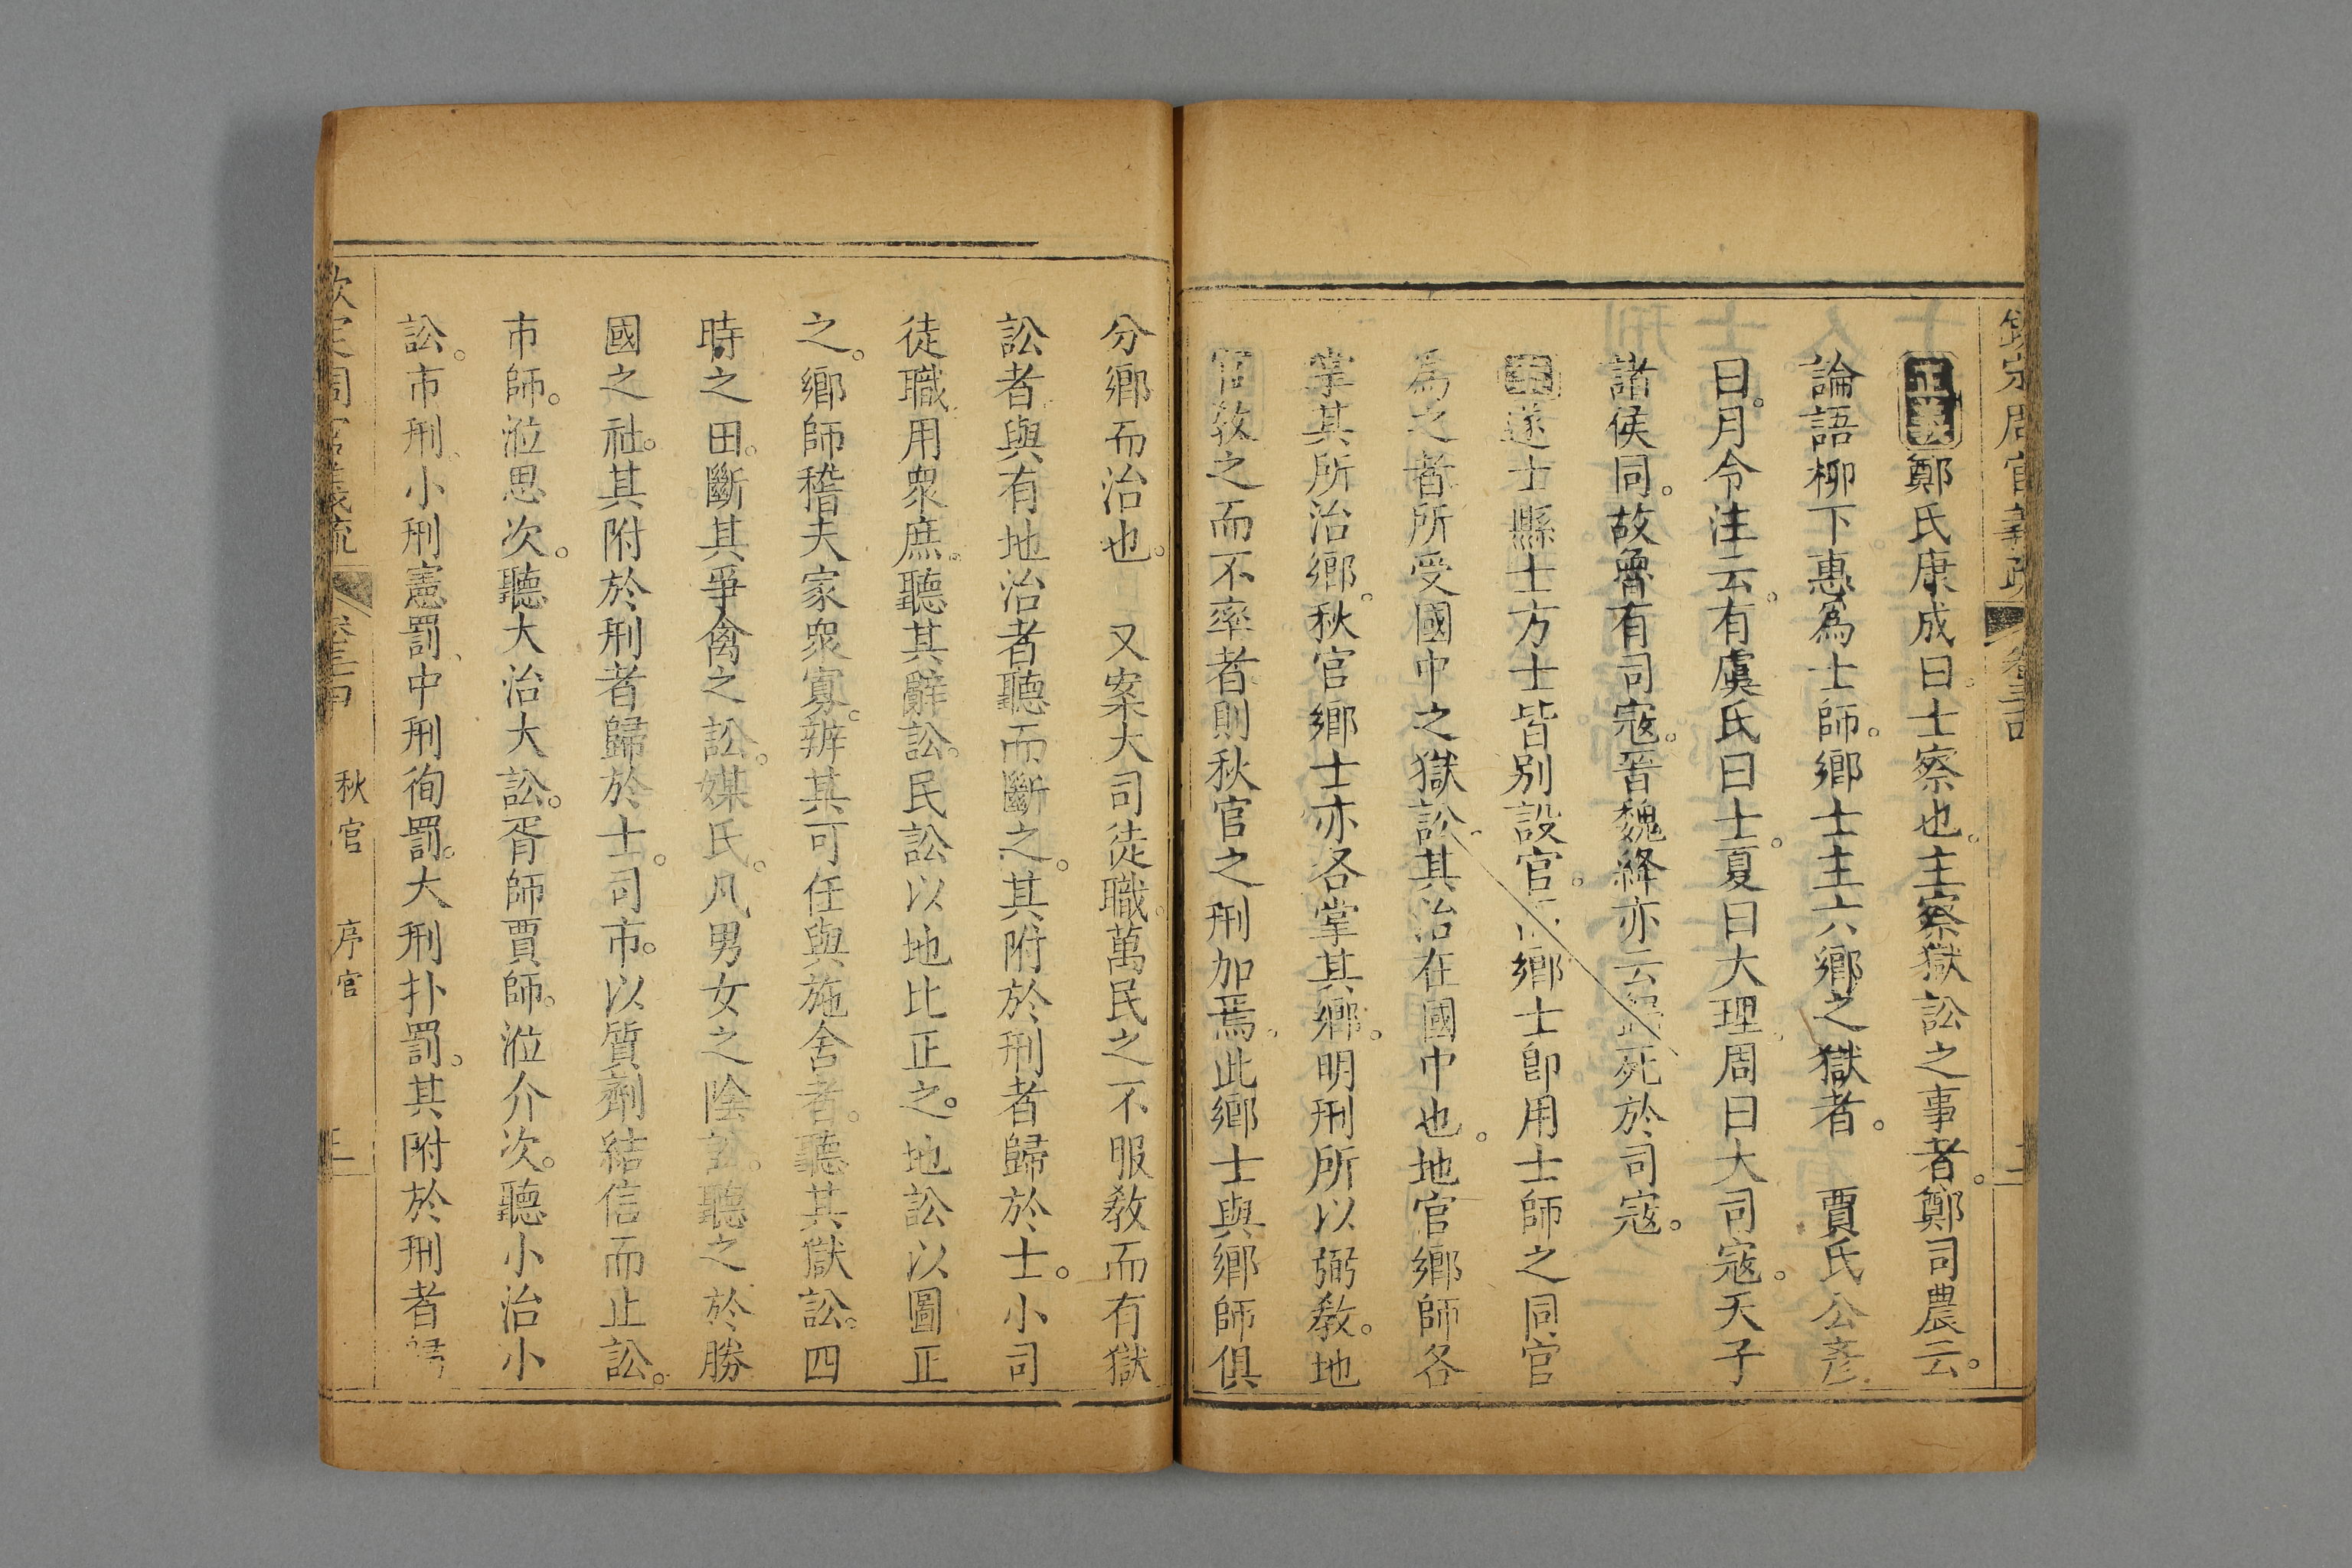 欽定周官義疏 卷三四 二
正義鄭氏康成曰士察也。主察獄訟之事者。鄭司農云。
論語柳下惠為士師。鄉士主六鄉之獄者。 賈氏公彥
曰。月令注云。有虞氏曰士。夏曰大理。周曰大司寇。天子
諸侯同。故魯有司寇。晉魏絳亦云歸死於司寇。
案遂士縣士方士皆別設官。 鄉士即用士師之同官
為之者所受國中之獄訟。其治在國中也。地官鄉師各
掌其所治鄉。秋官鄉士亦各掌其鄉。明刑所以弼教。地
官教之而不率者則秋官之刑加焉。此鄉士與鄉師俱
分鄉而治也。 又案大司徒職。萬民之不服教而有獄
訟者與有地治者聽而斷之。其附於刑者歸於士。小司
徒職。用眾庶。聽其辭訟。民訟以地比正之。地訟以圖正
之。鄉師稽夫家眾寡。辨其可任與施舍者。聽其獄訟。四
時之田。斷其爭禽之訟。媒氏。凡男女之陰訟。聽之於勝
國之社。其附於刑者歸於士。司市。以質劑結信而止訟。
市師。涖思次。聽大治大訟。胥師賈師。涖介次。聽小治小
訟。市刑、小刑憲罰、中刑徇罰。大刑扑罰。其附於刑者歸
欽定周官義疏 卷三四 秋官 序官 三